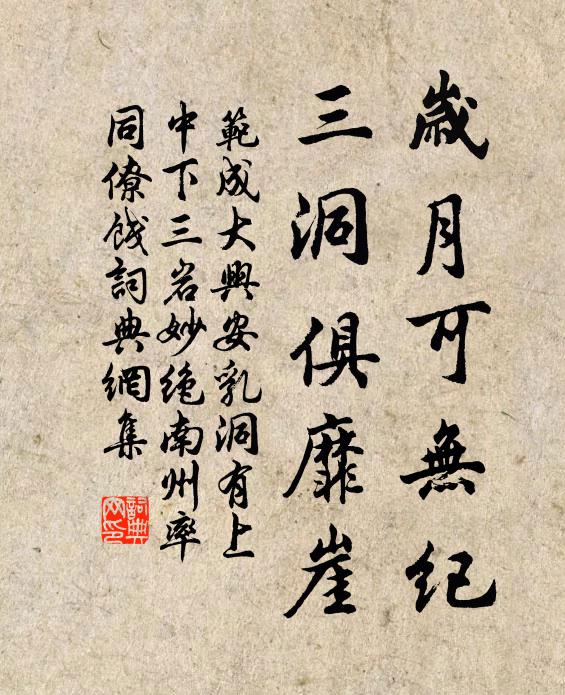 歲月可無紀
三洞俱靡崖
範成大興安乳洞有上
中下三岩妙絶南州率
同僚餞詞典網集
詞典
网印